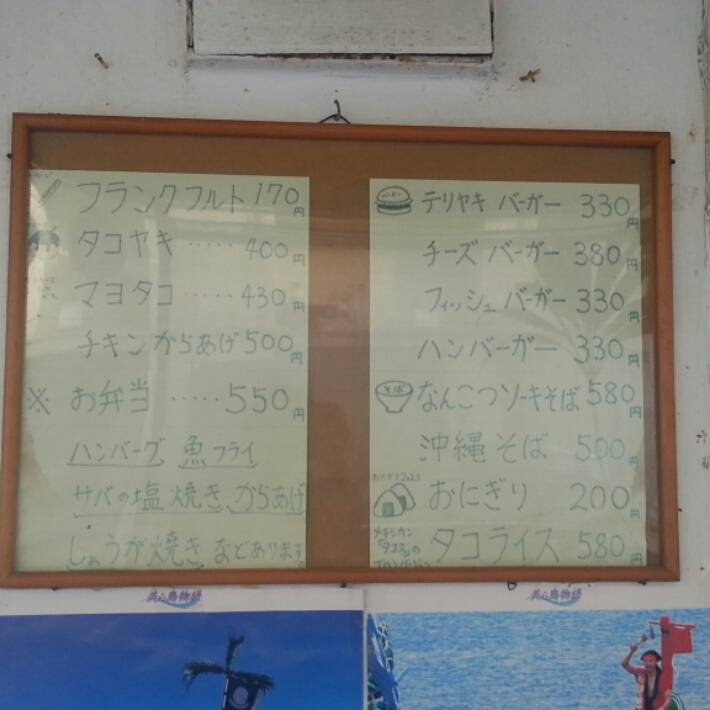 フランクフルト 170円
タコヤキ ..... 400円
マヨタコ ..... 430円
チキンからあげ 500円
※ お弁当 ..... 550円
ハンバーグ 魚フライ
サバの塩焼き、からあげ
しょうが焼き などあります。
テリヤキ バーガー 330円
チーズ バーガー 380円
フィッシュ バーガー 330円
ハンバーガー 330円
そば
なんこつソーキそば 580円
沖縄そば 500円
おにぎり 200円
メキシカン
「タコス」の
タコライス 580円
美ら島物語
美ら島物語